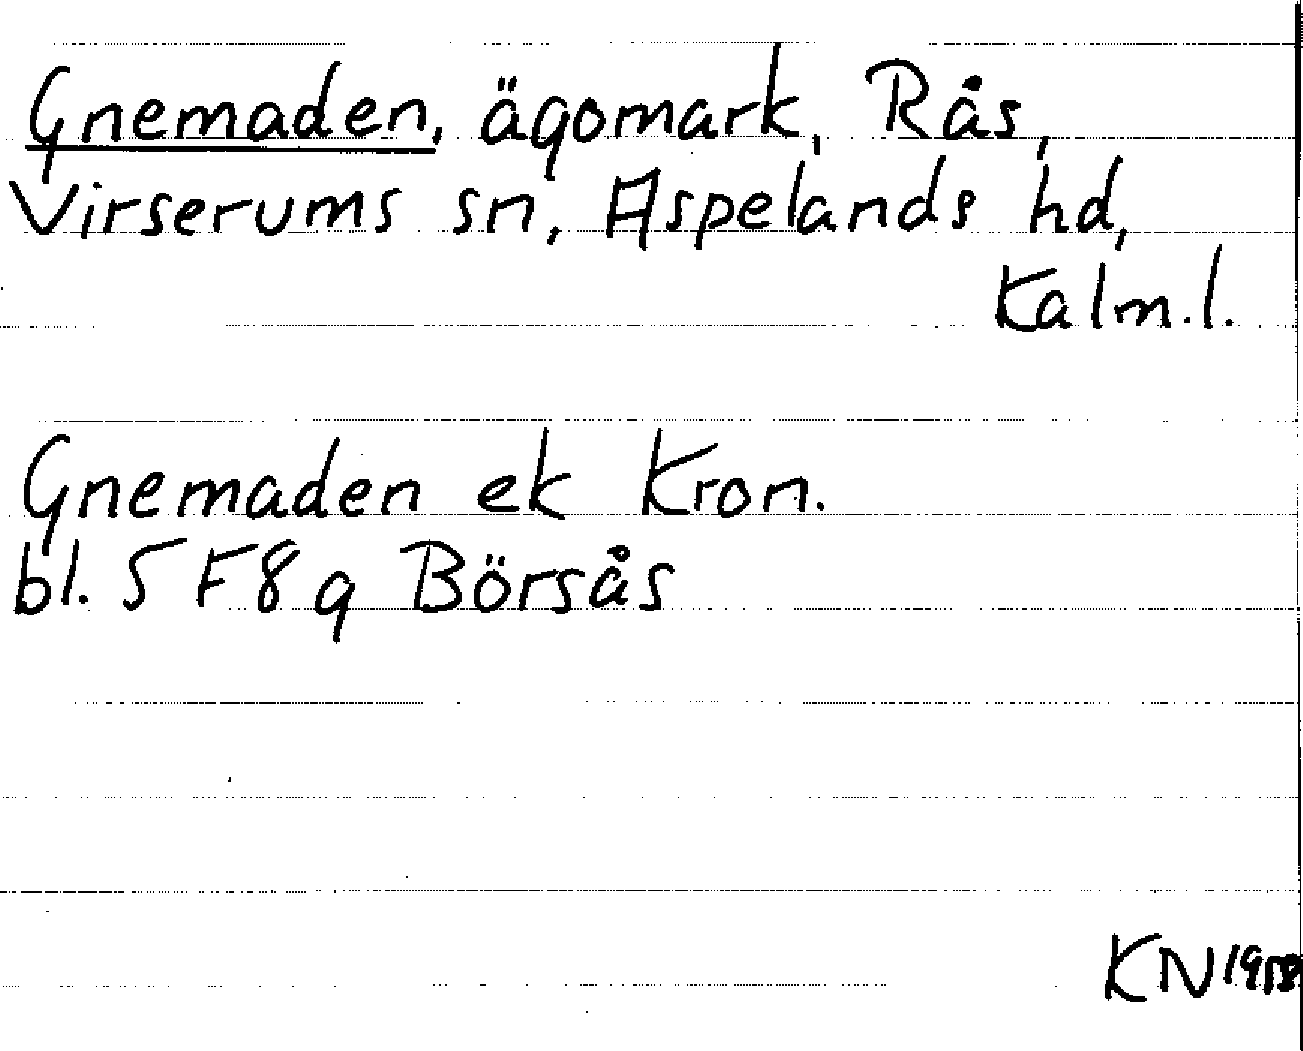 Gnemaden, ägomark, Rås,
Virserums sn, Aspelands hd,
Kalm.l.
Gnemaden ek Kron.
bl. 5 F 8 g Börsås
KN 1958